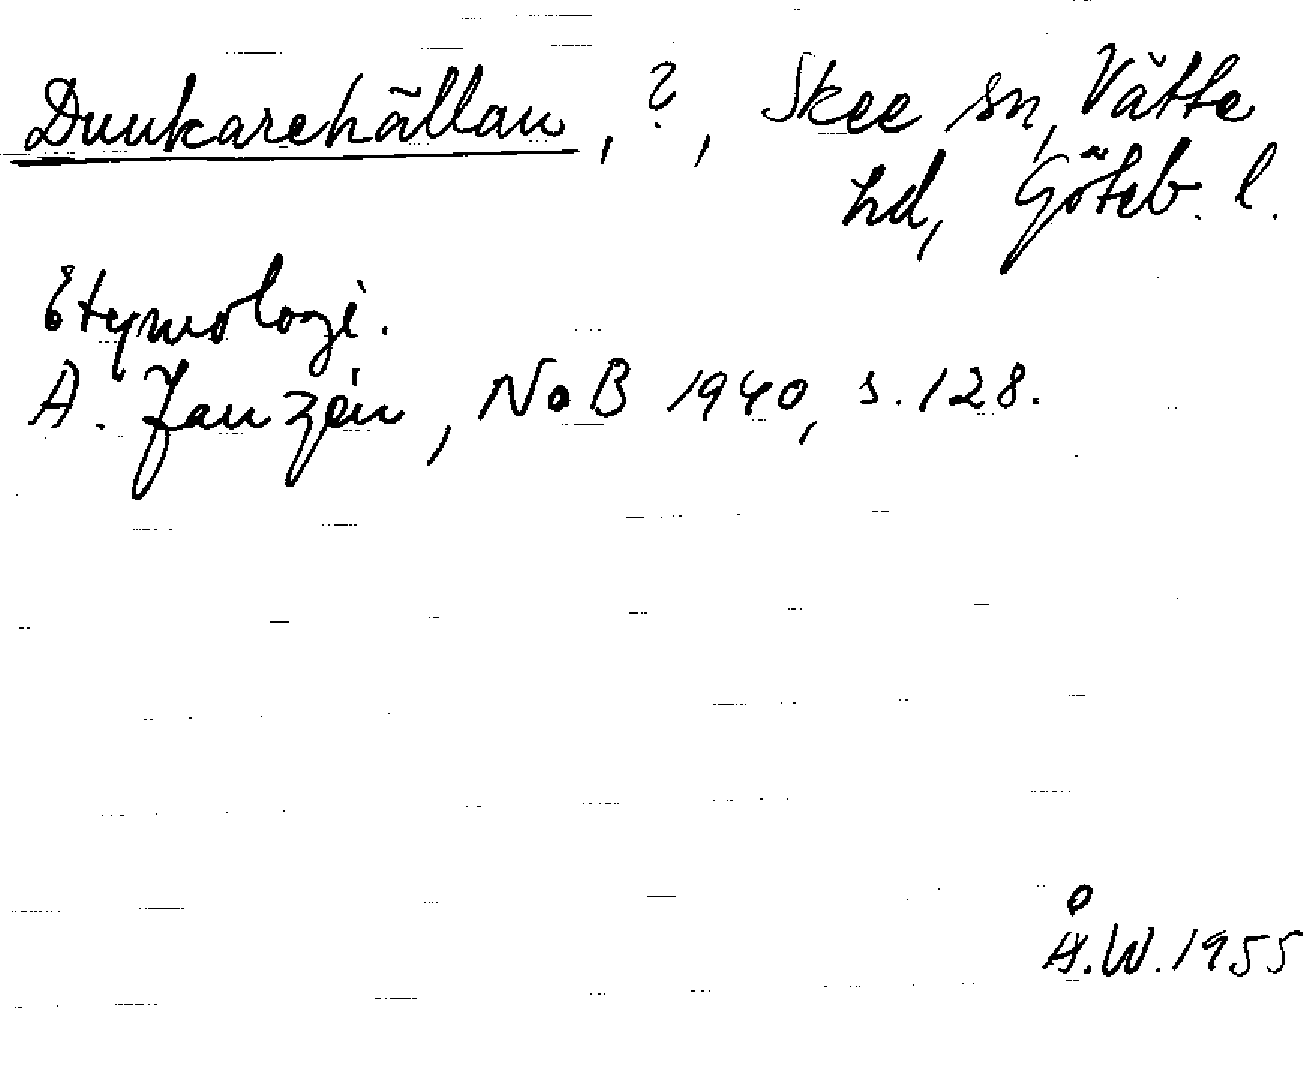 Dunkarehällan, ?, Skee sn, Vätte
hd, Göteb. l.
Etymologi.
A. Janzén, NoB 1940, s. 128.
Å.W. 1955